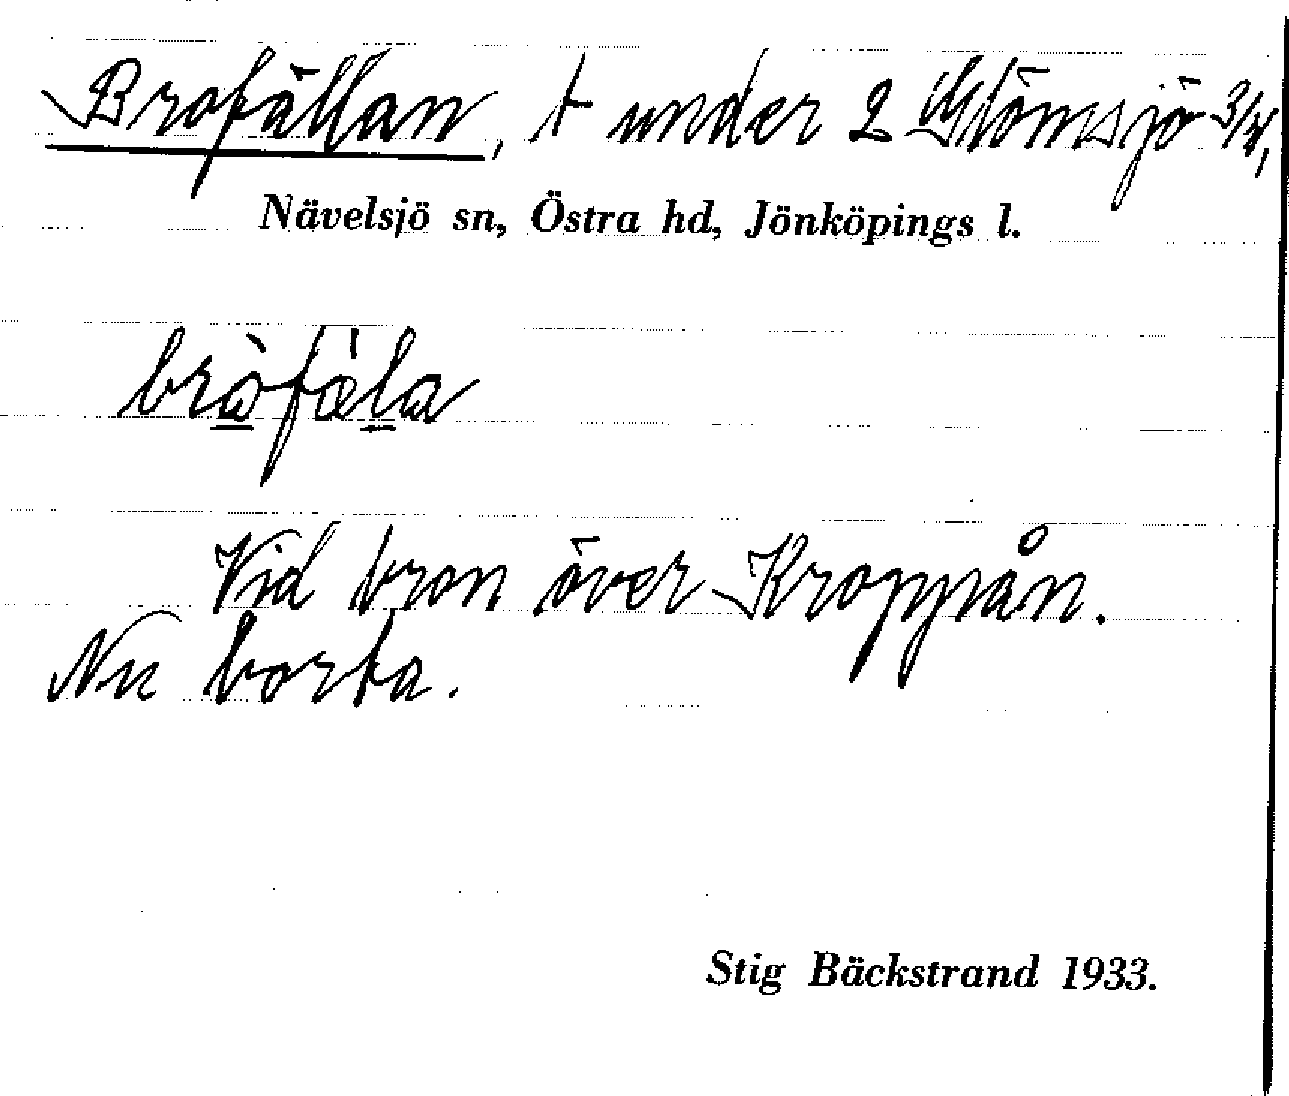 Brofällan, t under 2 Glömsjö 3/4,
Nävelsjö sn, Östra hd, Jönköpings l.
bråfäla
Vid bron över Kroppån.
Nu borta.
Stig Bäckstrand 1933.